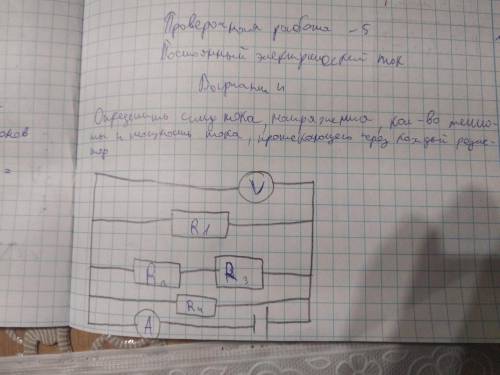 Проверочная работа -5
Постоянный электрический ток
Вариант 4
Определить силу тока, напряжения, кол-во теплоты
и мощность тока, протекающего через каждый резис-
тор
V
R1
R2 R3
R4
A
оков
=